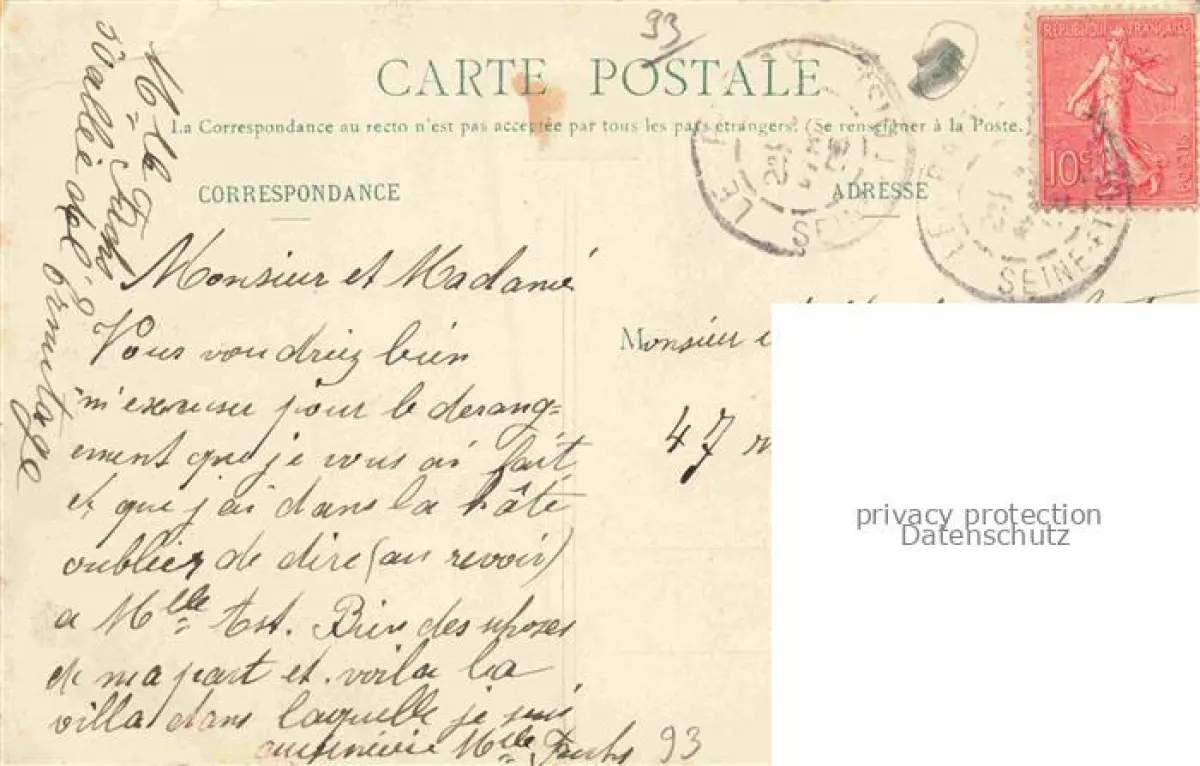 93
CARTE POSTALE
La Correspondance au recto n'est pas acceptée par tous les pays étrangers. (Se renseigner à la Poste.)
RÉPUBLIQUE FRANÇAISE
10c
POSTES
LE
SEINE
LE RA
SEINE-ET
CORRESPONDANCE
ADRESSE
Monsieur et Madame
Vous voudriez bien
m'excuser pour le derang=
ement que je vous ai fait
et que j'ai dans la hâte
oublier de dire (au revoir)
a Mlle Ast. Bien des choses
de ma part et voila la
villa dans laquelle je suis
Mlle Fuchs 93
Monsieur
47
50 allée de l'Ermitage
privacy protection
Datenschutz